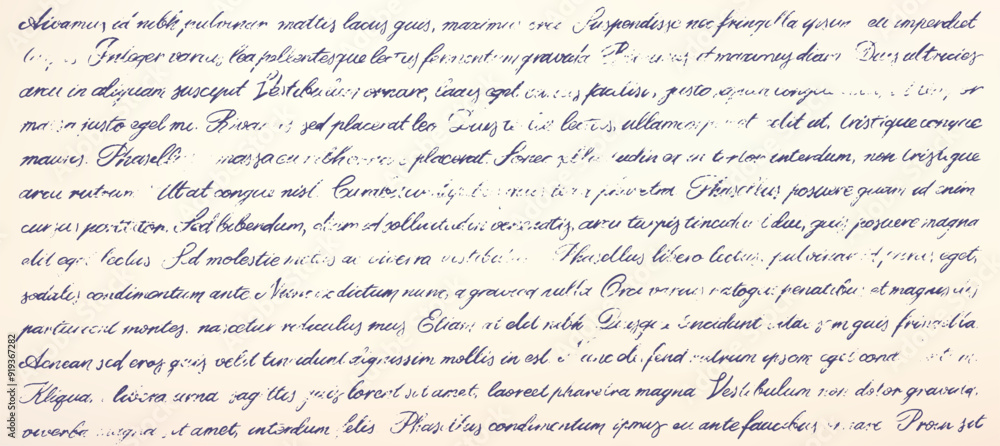 Vivamus id nibh pulvinar mattis lacus quis, maximus orci. Suspendisse nec fringilla ipsum eu imperdiet
Integer varius leo, pellentesque lectus fermentum gravida et maximus diam Duis ultricies
arcu in aliquam suscipit Vestibulum ornare, lacus eget faucis facilisis, justo
massa justo eget mi. Vivamus sed placerat leo Duis lectus, ullamcorper et elit ut, tristique congue
mauris. Phasellus massa eu nibh placerat. Donec sollicitudin ex in tortor interdum, non tristique
arcu rutrum Ut at congue nisl. Curabitur pharetra Phasellus posuere quam id enim
cursus porttitor. Sed bibendum, diam ad sollicitudin venenatis, arcu turpis tincidunt dui, quis posuere magna
elit eget lectus Sed molestie metus ac viverra vestibulum Phasellus libero lectus, pulvinar et purus eget,
sodales condimentum ante Nunc ex dictum nunc, a gravida nulla Orci varius natoque penatibus et magnis dis
parturient montes, nascetur ridiculus mus Etiam at elit nibh Quisque tincidunt vitae sem quis fringilla.
Aenean sed eros quis velit tincidunt dignissim mollis in est Nunc eleifend rutrum ipsum eget
Aliquam viverra urna sagittis quis lorem sit amet, laoreet pharetra magna Vestibulum non dolor gravida,
viverra magna sit amet, interdum felis Phasellus condimentum ipsum eu ante faucibus ornare Proin sit
Adobe Stock | #919367282